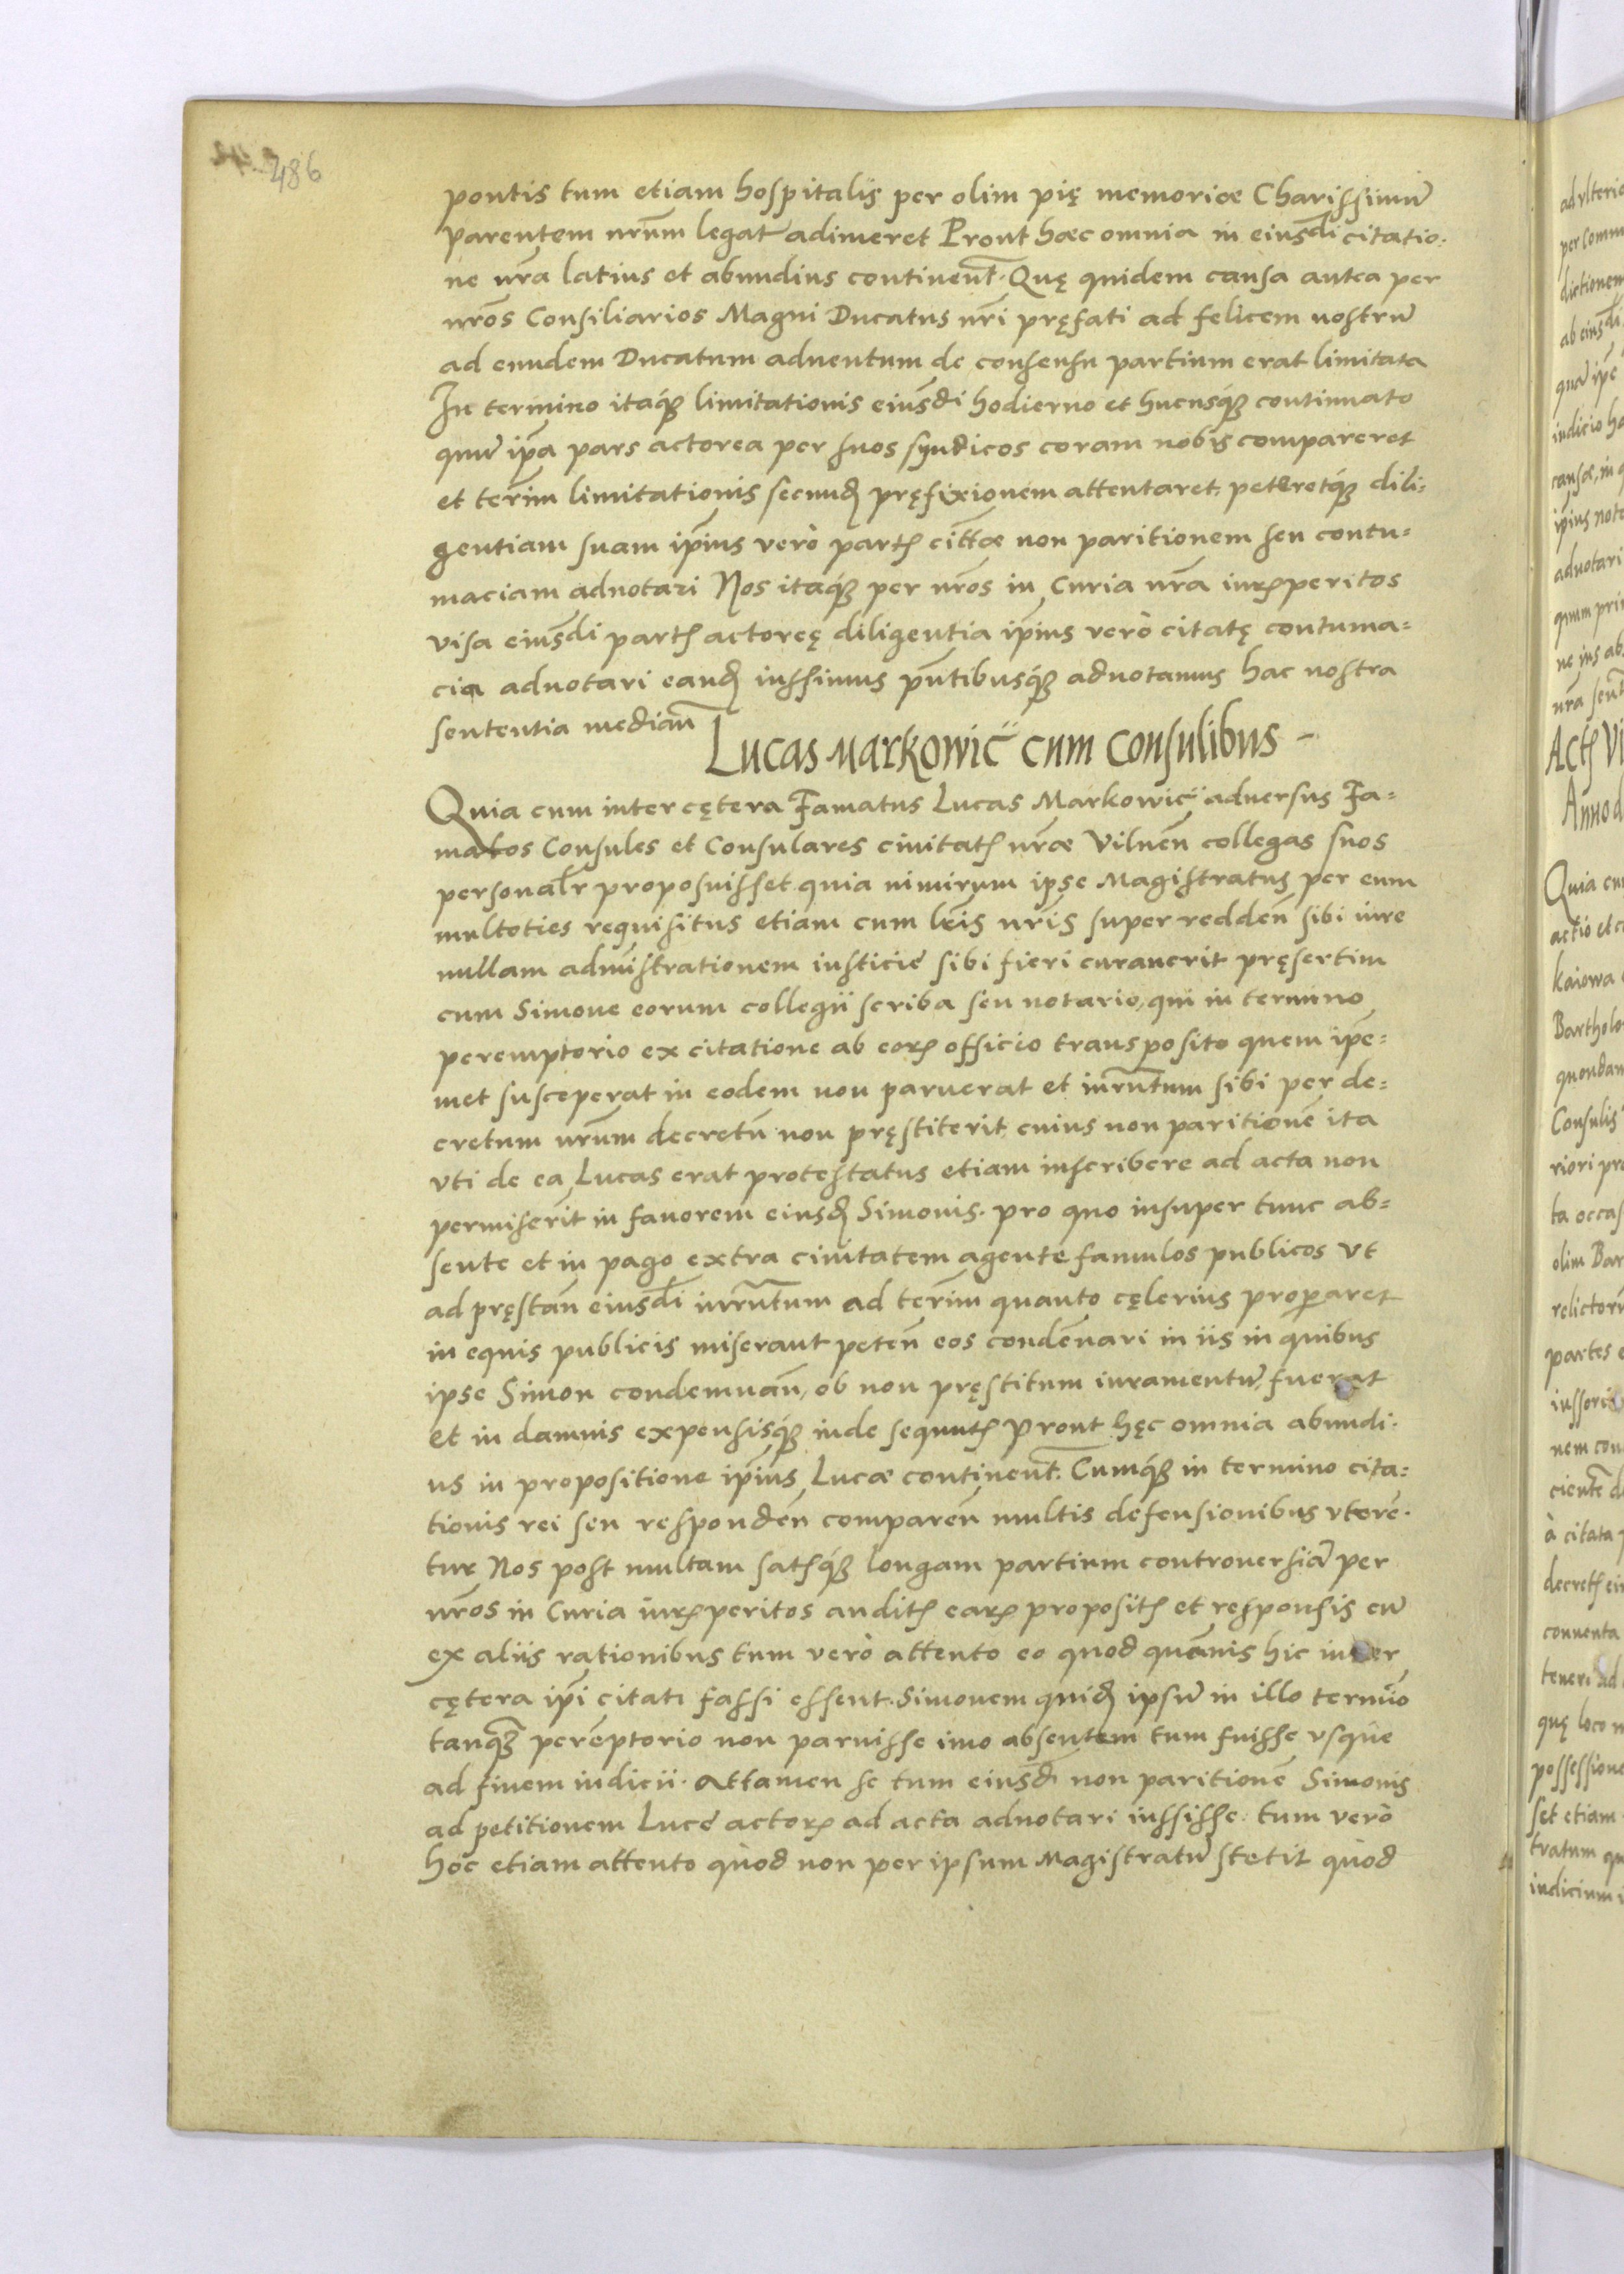 486
pontis tum etiam hospitalis per olim pię memoriae Charissimū
parentem nr̄um legat adimeret Prout haec omnia in eiusdi citatio-
ne nr̄a latius et abundius continent̄. Quę quidem causa antea per
nr̄os Consiliarios Magni Ducatus nr̄i pręfati ad felicem nostrū
ad eundem Ducatum aduentum de consensu partium erat limitata
In termino itaq₃ limitationis eiusdi hodierno et hucusq₃ continuato
quū ip̄a pars actorea per suos syndicos coram nobis compareret
et term̄ limitationis secundꝫ pręfixionem attentaret, peteretq₃ dili-
gentiam suam ip̄ius verò partꝭ citt̄ae non paritionem seu contu-
maciam adnotari Nos itaq₃ per nr̄os in Curia nr̄a iurꝭperitos
visa eiusdi partꝭ actoreę diligentia ip̄ius verò citatę contuma-
cia adnotari eandꝫ iussimus pn̄tibusq₃ adnotamus hac nostra
sententia median̄
Lucas Markowic̈ cum Consulibus -
Quia cum inter cętera Famatus Lucas Markowic̈ aduersus Fa-
matos Consules et Consulares ciuitatꝭ nr̄ae Vilnen̄ collegas suos
personalr̄ proposuisset quia nimirum ipse Magistratus per eum
multoties requisitus etiam cum lr̄is nr̄is super redden̄ sibi iure
nullam admīstrationem iusticię sibi fieri curauerit pręsertim
cum Simone eorum collegii scriba seu notario, qui in termino
peremptorio ex citatione ab eorꝫ officio transposito quem ip̄e-
met susceperat in eodem non paruerat et iurn̄tum sibi per de-
cretum nr̄um decretū non pręstiterit cuius non paritionē ita
vti de ea Lucas erat protestatus etiam inscribere ad acta non
permiserit in fauorem eiusdꝫ Simonis. pro quo insuper tunc ab-
sente et in pago extra ciuitatem agente famulos publicos vt
ad pręstan̄ eiusdi iurn̄tum ad term̄ quanto cęlerius properaret
in equis publicis miserant peten̄ eos condēnari in iis in quibus
ipse Simon condemnan̄, ob non pręstitum iuramentū, fuerat
et in damnis expensisq₃ inde sequutꝭ Prout hęc omnia abundi-
us in propositione ip̄ius Lucae continent̄. Cumq₃ in termino cita-
tionis rei seu responden̄ comparen̄ multis defensionibus vterē-
tur Nos post multam satꝭq₃ longam partium controuersiā per
nr̄os in Curia iurꝭperitos auditꝭ earꝫ propositꝭ et responsis cū
ex aliis rationibus tum verò attento eo quod quāuis hic inter
cętera ip̄i citati fassi essent. Simonem quidꝫ ipsū in illo termīo
tanq₃ perēptorio non paruisse imo absentem tum fuisse vsque
ad finem iudicii. Attamen se tum eiusdi non paritionē Simonis
ad petitionem Lucę actorꝫ ad acta adnotari iussisse. tum verò
hoc etiam attento quòd non per ipsum Magistratū stetit quòd